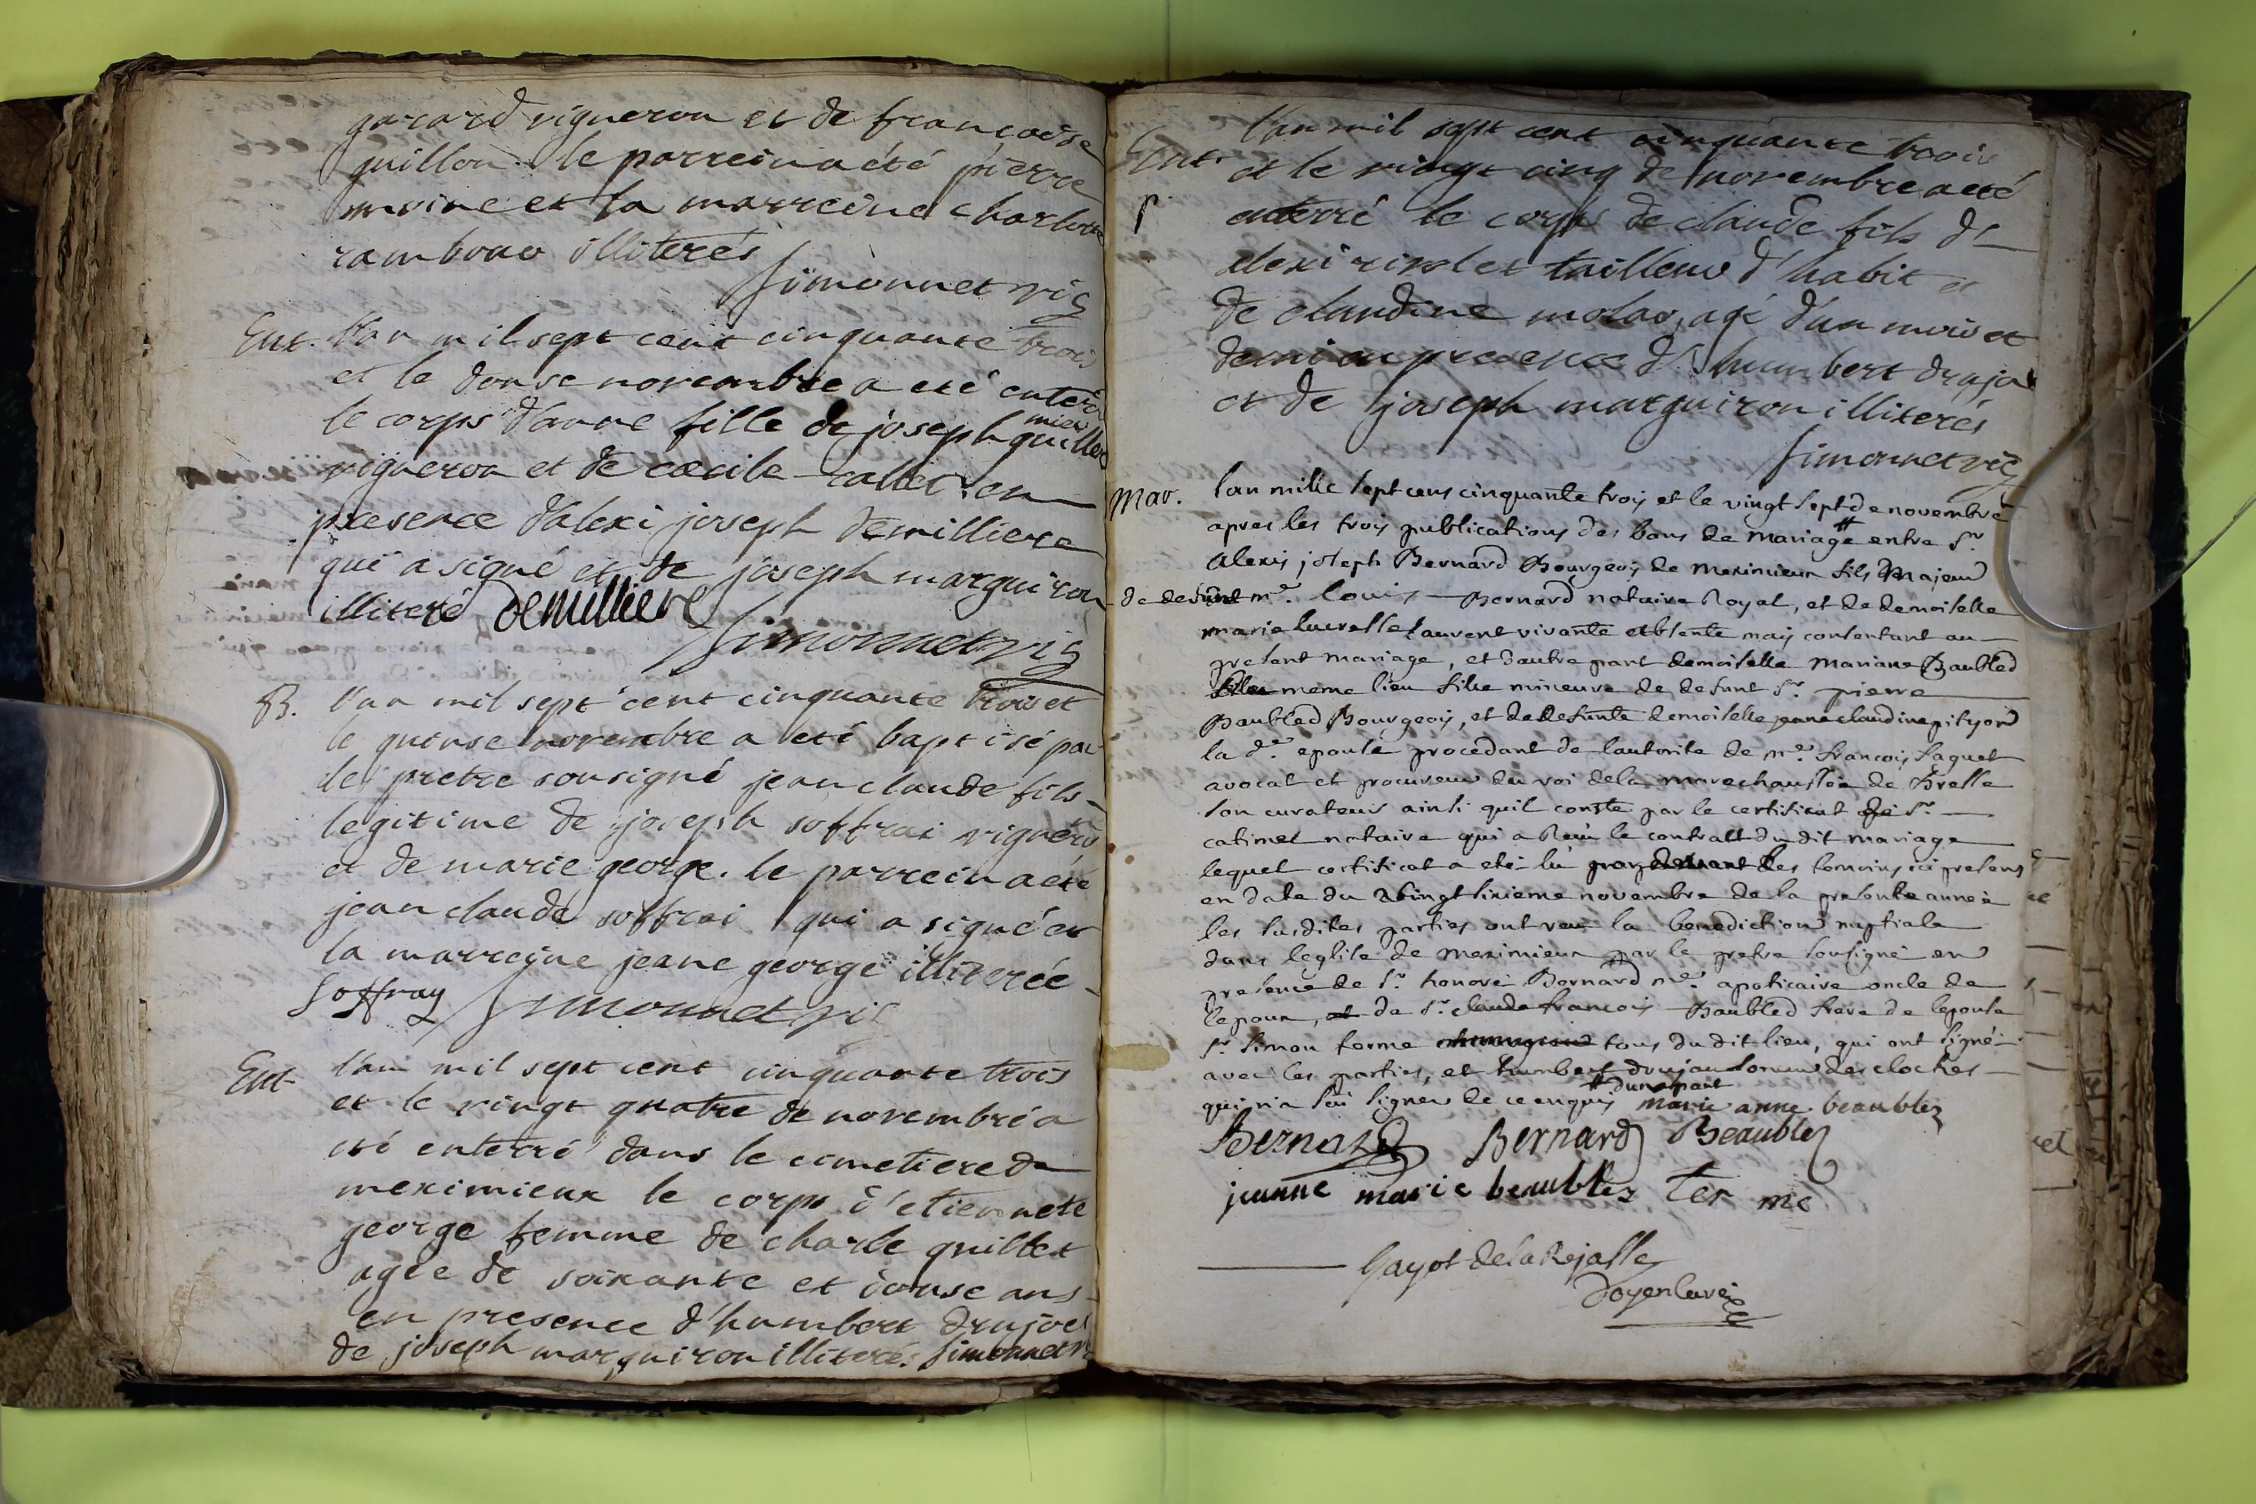 garard vigneron et de francoise
guillon le parrein a été pierre
moine et la marreine charlote
rambour illiterés
Simonnet vic
Ent. l'an mil sept cent cinquante trois
et le douse novembre a eté enteré
le corps d'anne fille de joseph quillet
vigneron et de cœcile en
præsence d'alexi joseph demilliere
qui a signé et de joseph marguiron
illiteré demilliere
Simonnet vic
B. l'an mil sept cent cinquante trois et
le quinse novembre a eté baptisé par
le pretre sousigné jean claude fils
legitime de joseph soffrai vigneron
et de marie george. le parrein a eté
jean claude soffrai qui a signé et
la marreine jeane george illiterée
Soffray Simonnet vic
Ent l'an mil sept cent cinquante trois
et le vingt quatre de novembre a
eté enterré dans le cimetiere de
meximieux le corps d'etiennete
george femme de charle quillet
agée de soixante et douse ans
en presence d'humbert drujo et
de joseph marguiron illiteré. Simonnet v
Ent. l'an mil sept cent cinquante trois
et le vingt cinq de novembre a eté
enterré le corps de claude fils d'
alexi tailleur d'habit et
de claudine molas, agé d'un mois et
demi en presence d'humbert drujo
et de joseph marguiron illiterés
Simonnet vic
Mar. lan mille sept cens cinquante trois et le vingt sept de novembre
apres les trois publications des bans de mariage # entre Sr
alexis joseph Bernard Bourgeois de meximieux fils majeur
de defunt me. Louis Bernard notaire Royal, et de demoiselle
marie lucresse Laurent vivante absente mais consentant au
present mariage, et dautre part demoiselle mariane Baubled
du meme lieu fille mineure de defunt Sr. pierre
Baubled Bourgeois, et de defunte demoiselle jeane claudine pityon
la de. epouse procedant de lautorite de me. francois faguet
avocat et procureur du roi de la marechaussée de Bresse
son curateur ainsi quil conste par le certificat de Sr.
catimel notaire qui a Recu le contract du dit mariage
lequel certificat a eté lu par devant les temoins ici presens
en date du vingt sixieme novembre de la presente année
les susdites parties ont recu la benediction nuptiale
dans leglise de meximieux par le pretre sousigné en
presence de Sr. honoré Bernard me. apoticaire oncle de
lepoux, de Sr. claude francois Baubled frere de lepouse
Sr. Simon terme tous du dit lieu, qui ont signé
avec les parties, et humbert drujau sonneur des cloches
qui n'a seu signer de ce enquis # dune part marie anne beaublez
Bernard Bernard Beaublez
jeanne marie beaublez Ter me
Gayot de la Rejasse
Doyen Curé